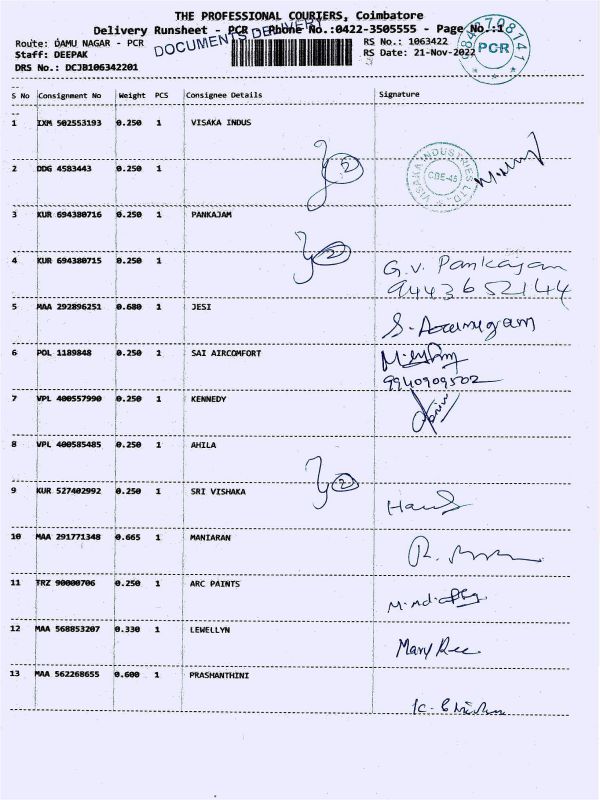 THE PROFESSIONAL COURIERS, Coimbatore
Delivery Runsheet - PCR - Phone No.:0422-3505555 - Page No.:1
Route: DAMU NAGAR - PCR
RS No.: 1063422
Staff: DEEPAK
RS Date: 21-Nov-2022
DRS No.: DCJB106342201
DOCUMENTS DELIVERY
9842708141
PCR
S No Consignment No Weight PCS Consignee Details Signature
1 IXM 502553193 0.250 1 VISAKA INDUS
2 DDG 4583443 0.250 1
2
VISAKA INDUSTRIES LTD
CBE-45
3 KUR 694380716 0.250 1 PANKAJAM
2
4 KUR 694380715 0.250 1
G.V. Pankajam
9443652144
5 MAA 292896251 0.680 1 JESI
6 POL 1189848 0.250 1 SAI AIRCOMFORT
9940909502
7 VPL 400557990 0.250 1 KENNEDY
8 VPL 400585485 0.250 1 AHILA
2
9 KUR 527402992 0.250 1 SRI VISHAKA
10 MAA 291771348 0.665 1 MANIARAN
11 TRZ 90000706 0.250 1 ARC PAINTS
12 MAA 568853207 0.330 1 LEWELLYN
13 MAA 562268655 0.600 1 PRASHANTHINI